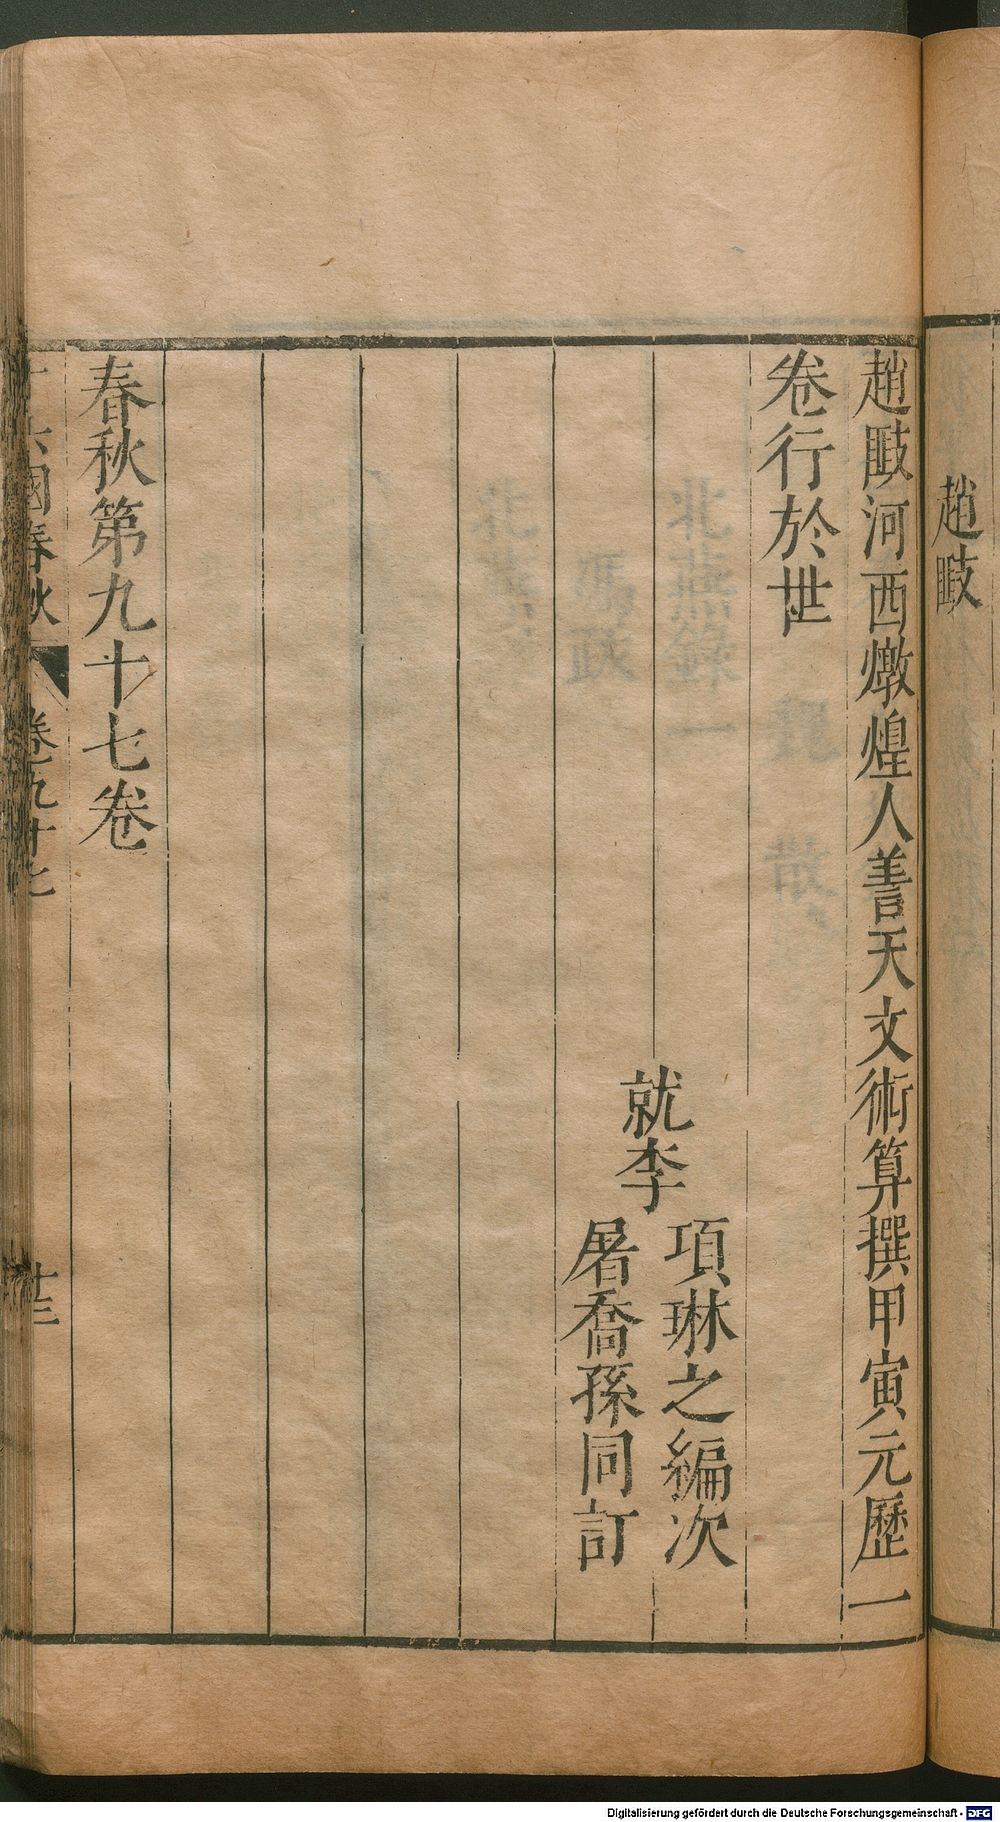 趙𣤯
趙𣤯河西燉煌人善天文術算撰甲寅元歷一
卷行於世
就李
項琳之編次
屠喬孫同訂
春秋第九十七卷
十六國春秋 卷九十七 十三
Digitalisierung gefördert durch die Deutsche Forschungsgemeinschaft - DFG